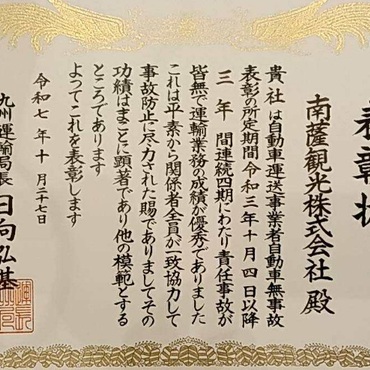 表彰状
南薩観光株式会社 殿
貴社は自動車運送事業者自動車無事故
表彰の所定期間令和三年十月四日以降
三年間連続四期にわたり責任事故が
皆無で運輸業務の成績が優秀でありました
これは平素から関係者全員が一致協力して
事故防止に尽力された賜でありましてその
功績はまことに顕著であり他の模範とする
ところであります
よってこれを表彰します
令和七年十月二十七日
九州運輸局長 日向弘基